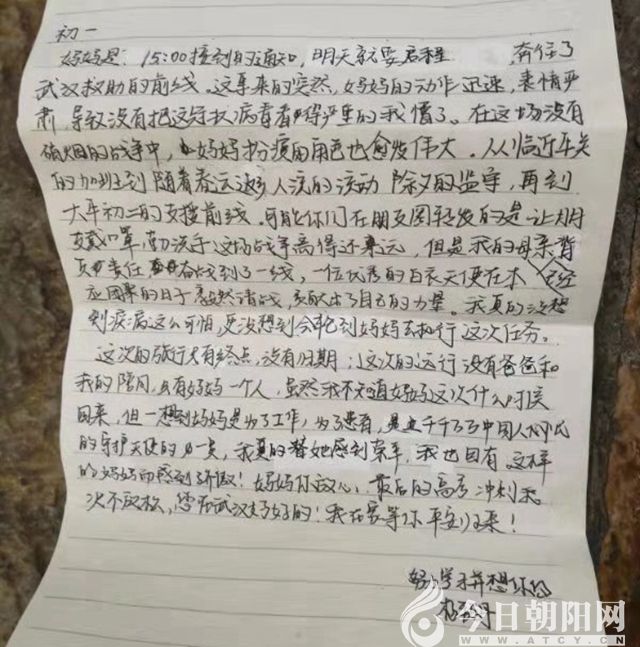 初一
妈妈是15:00接到的通知,明天就要启程 奔往了
武汉救助的前线。这事来的突然,妈妈的动作迅速,表情严
肃,导致没有把这份病毒看得严重的我懵了。在这场没有
硝烟的战争中,妈妈扮演的角色也愈发伟大。从临近年关
的加班到随着春运返乡人流的流动 除夕的监守,再到
大年初二的支援前线。可能你们在朋友圈转发的是让朋
友戴口罩,勤洗手这场战争离得还远,但是我的母亲背
负责任奋战到了一线,一位优秀的白衣天使在本
应团聚的日子毅然请战,贡献出了自己的力量。我真的没想
到疫病这么可怕,更没想到会轮到妈妈去执行这次任务。
这次的旅行只有终点,没有归期;这次的远行没有爸爸和
我的陪同,只有妈妈一个人,虽然我不知道妈妈这次什么时候
回来,但一想到妈妈是为了工作,为了患者,是千千万万中国人民
的守护天使的一员,我真的替她感到荣幸,我也因有这样
的妈妈而感到骄傲!妈妈你放心,最后的高考冲刺我
决不放松,您在武汉好好的!我在家等你平安归来!
好好学习并想你的
今日朝阳网
WWW.ATCY.CN